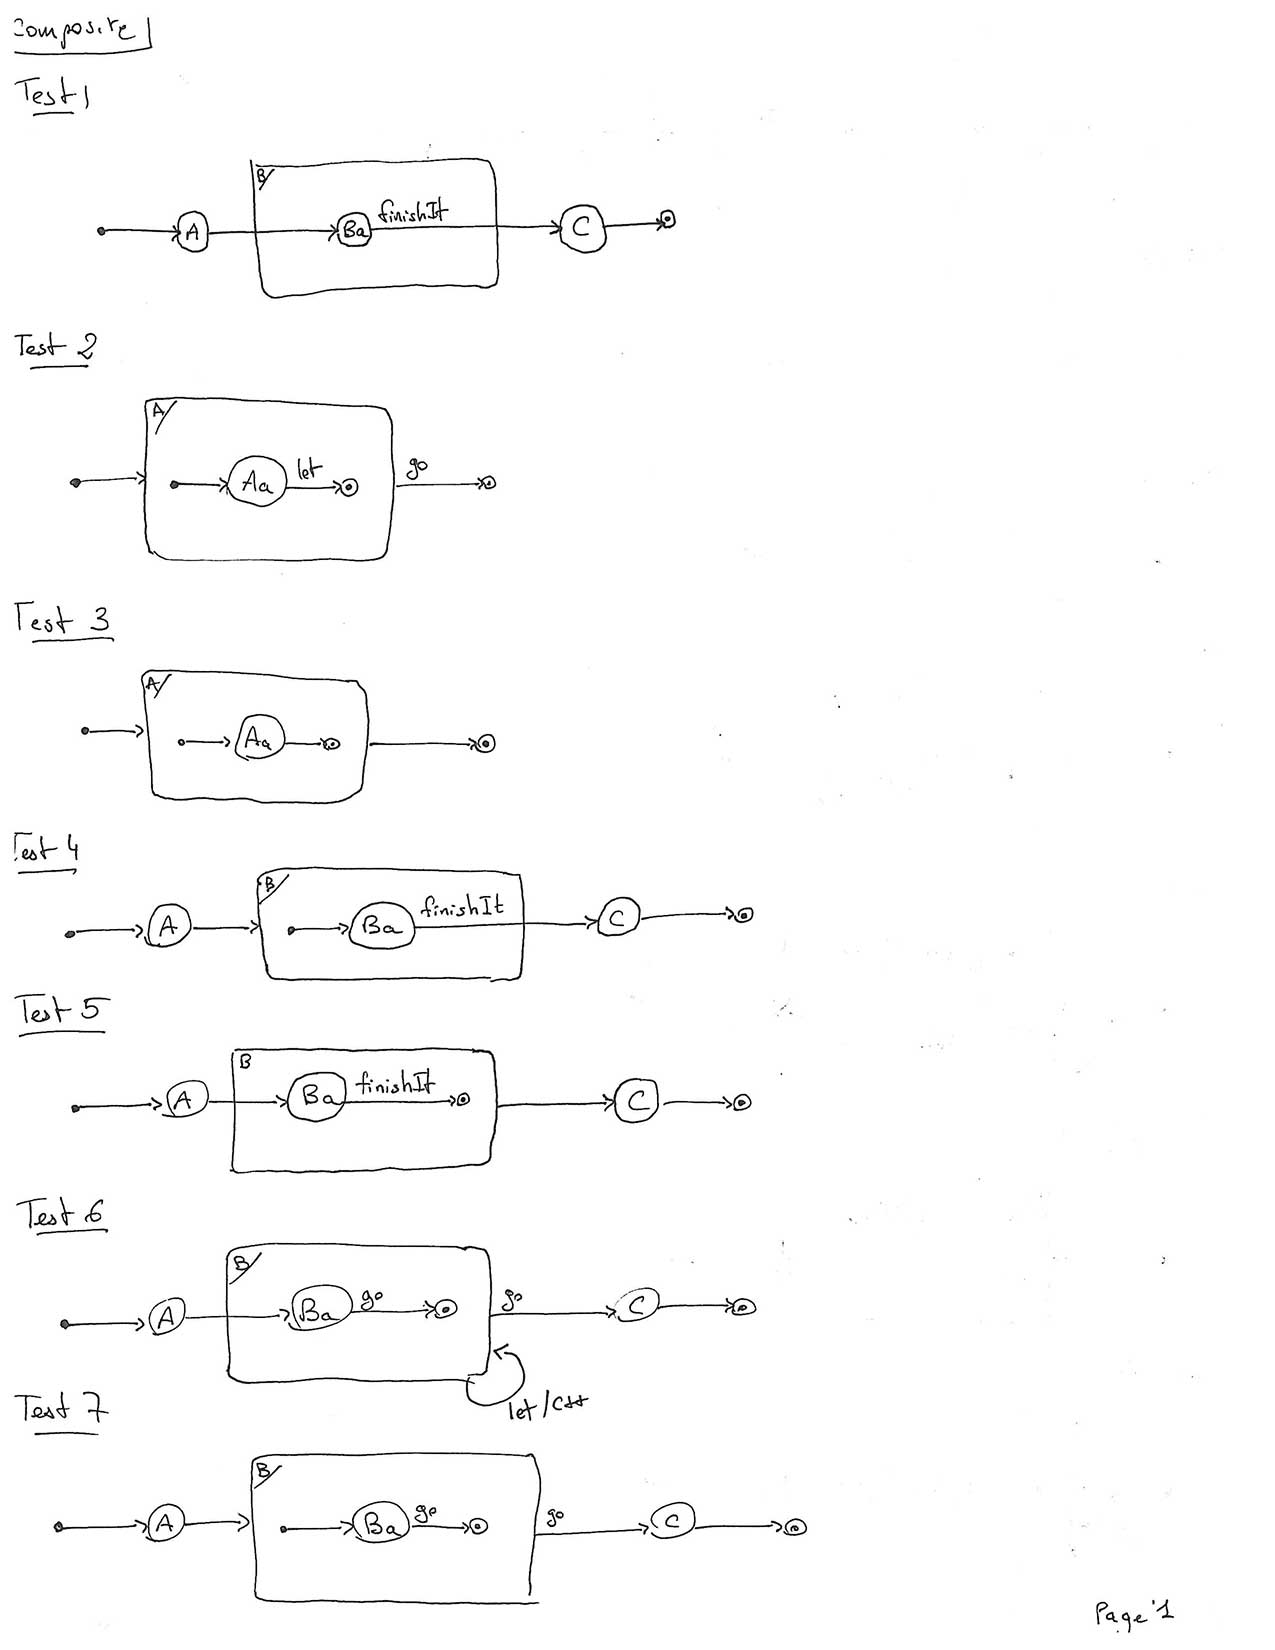 Composite
Test 1
B
A Ba finishIt C
Test 2
A
Aa let go
Test 3
A
Aa
Test 4
B
A Ba finishIt C
Test 5
B
A Ba finishIt C
Test 6
B
A Ba go go C
let / c++
Test 7
B
A Ba go go C
Page 1